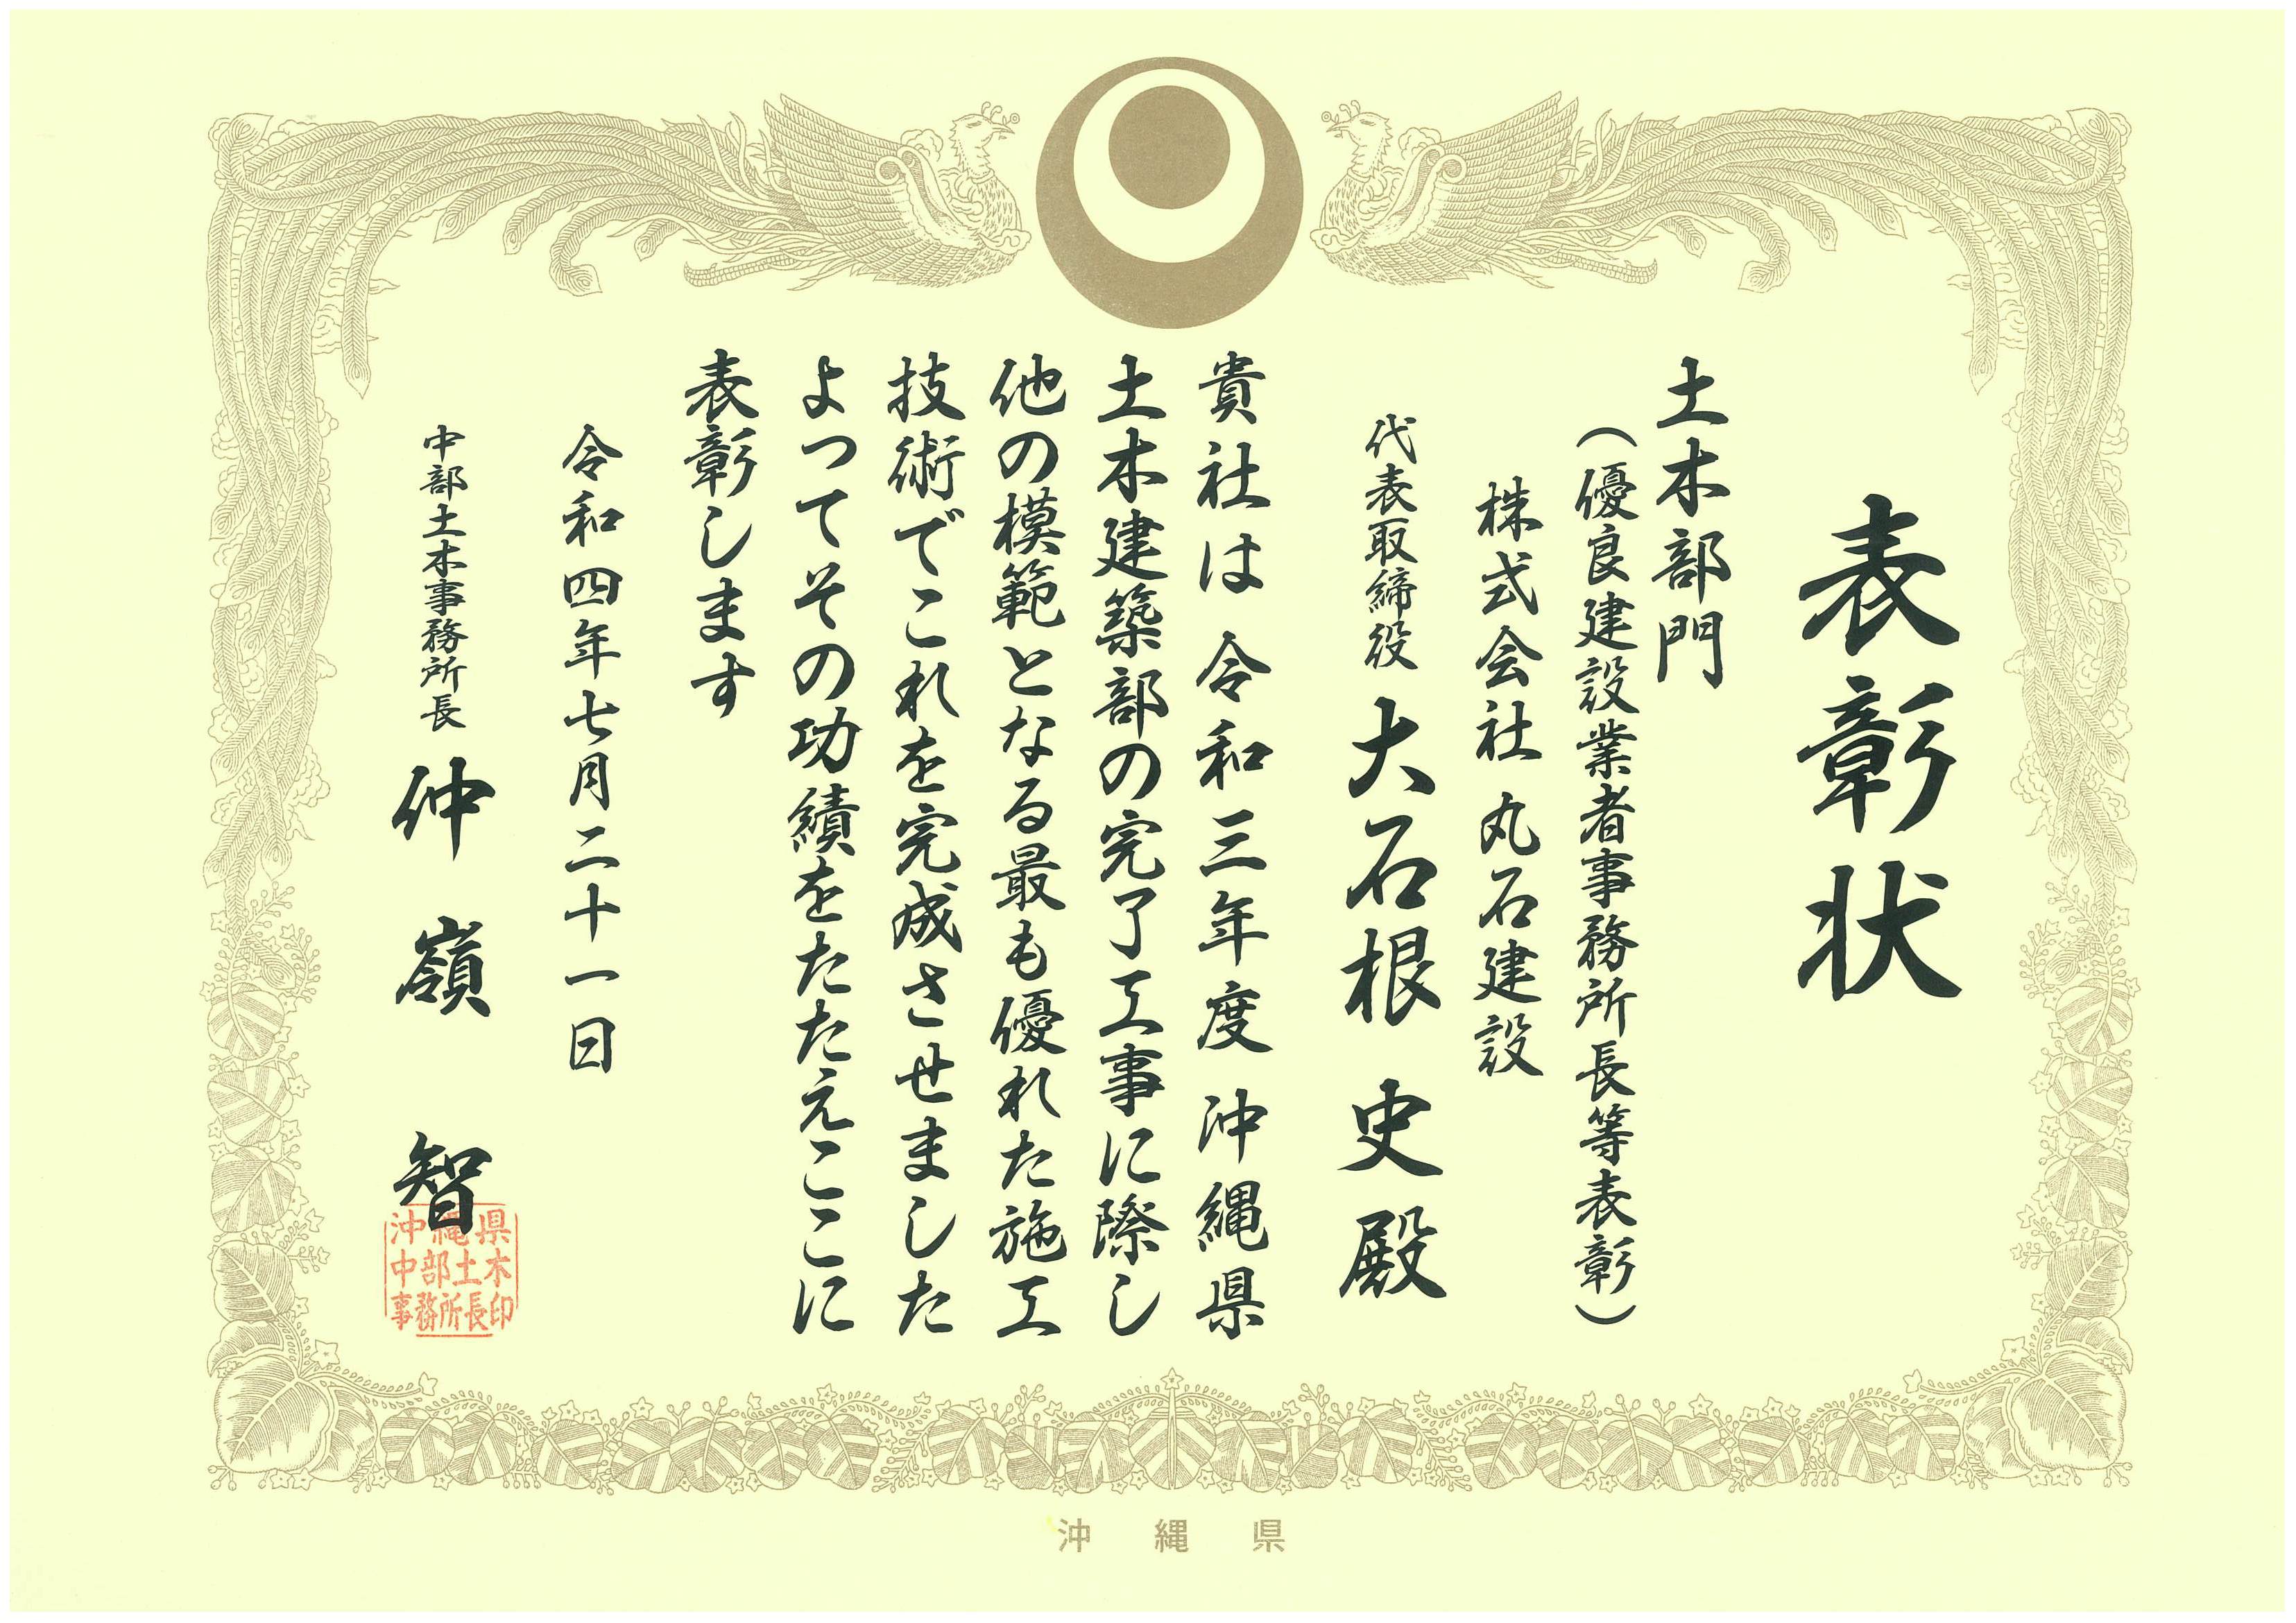 表彰状
土木部門
（優良建設業者事務所長等表彰）
株式会社 丸石建設
代表取締役 大石根 史 殿
貴社は 令和三年度 沖縄県
土木建築部の完了工事に際し
他の模範となる最も優れた施工
技術でこれを完成させました
よってその功績をたたえここに
表彰します
令和四年七月二十一日
中部土木事務所長 仲嶺 智
沖縄県
中部土木
事務所長印
沖縄県